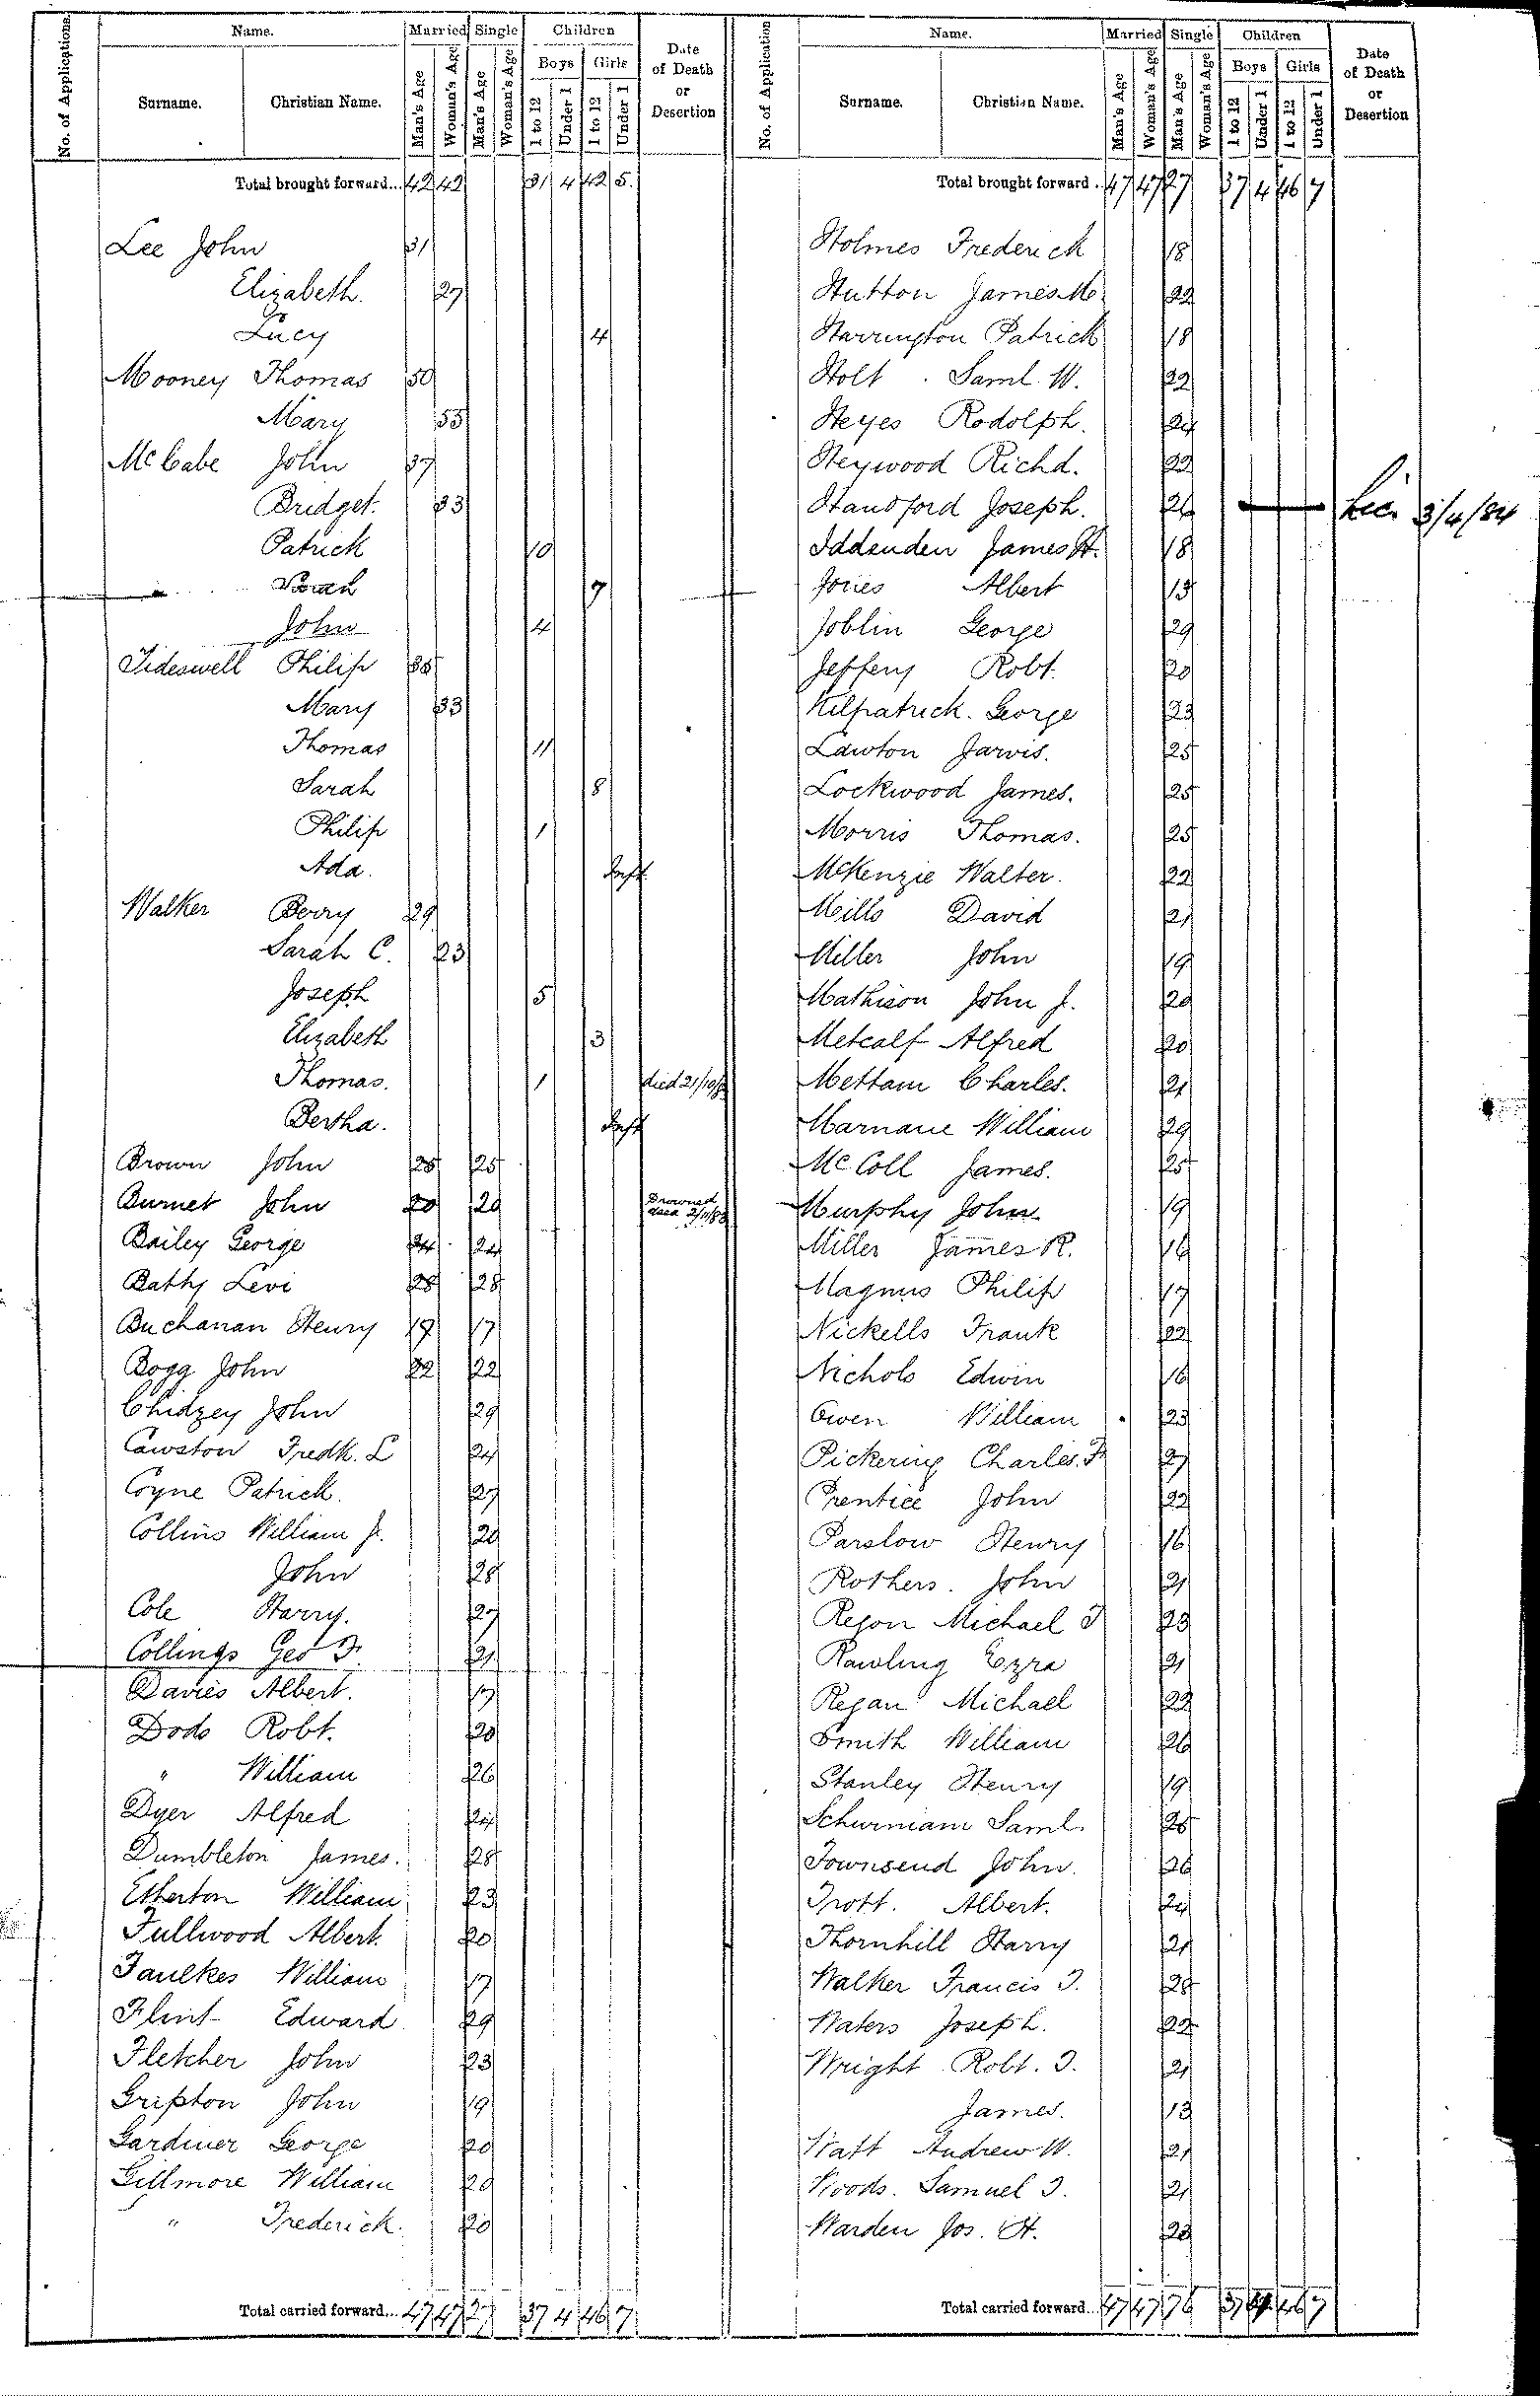 No. of Applications. Name. Married Single Children Date of Death or Desertion
Surname. Christian Name. Man's Age Woman's Age Man's Age Woman's Age Boys Girls
1 to 12 Under 1 1 to 12 Under 1
Total brought forward... 42 42 31 4 42 5.
Lee John 31
Elizabeth. 27
Lucy 4
Mooney Thomas 50
Mary 53
McCabe John 37
Bridget. 33
Patrick 10
Norah 7
John 4
Tideswell Philip 35
Mary 33
Thomas 11
Sarah 8
Philip 1
Ada. Inft
Walker Berry 29
Sarah C. 23
Joseph 5
Elizabeth 3
Thomas. 1 died 21/10/
Bertha. Inft
Brown John 25 25
Burnet John 20 20 Drowned 2/11/83
Bailey George 24 24
Batty Levi 28 28
Buchanan Henry 17 17
Bogg John 22 22
Chidzey John 29
Cawston Fredk. L 24
Coyne Patrick. 27
Collins William J. 20
John 28
Cole Harry. 27
Collings Geo F. 21
Davies Albert. 17
Dods Robt. 20
" William 26
Dyer Alfred 24
Dumbleton James. 28
Etherton William 23
Fullwood Albert. 20
Faulkes William 17
Flint Edward 29
Fletcher John 23
Gripton John 19
Gardiner George 20
Gillmore William 20
" Frederick. 20
Total carried forward... 47 47 27 37 4 46 7
No. of Application Name. Married Single Children Date of Death or Desertion
Surname. Christian Name. Man's Age Woman's Age Man's Age Woman's Age Boys Girls
1 to 12 Under 1 1 to 12 Under 1
Total brought forward . 47 47 27 37 4 46 7
Holmes Frederick 18
Hutton James Mc 22
Harrington Patrick 18
Holt Saml. W. 22
Heyes Rodolph. 24
Heywood Richd. 22
Handford Joseph. 26 3/4/84
Iddenden James H. 18
Jories Albert 13
Joblin George 29
Jeffery Robt. 20
Kilpatrick. George 23
Lawton Jarvis. 25
Lockwood James. 25
Morris Thomas. 25
McKenzie Walter. 22
Mills David 21
Miller John 19
Mathison John J. 20
Metcalf Alfred 20
Mettam Charles. 21
Marnane William 29
McColl James. 25
Murphy John 19
Miller James R. 16
Magnus Philip 17
Nickells Frank 22
Nichols Edwin 16
Owen William 23
Pickering Charles. F 27
Prentice John 22
Parslow Henry 16
Rothers. John 21
Regon Michael J 23
Rawling Ezra 21
Regan Michael 22
Smith William 26
Stanley Henry 19
Schurmann Saml. 25
Townsend John. 26
Trott. Albert. 24
Thornhill Harry 21
Walker Francis J. 28
Waters Joseph. 22
Wright Robt. J. 21
James. 13
Watt Andrew W. 21
Woods. Samuel J. 21
Warden Jos. H. 23
Total carried forward... 47 47 76 37 4 46 7